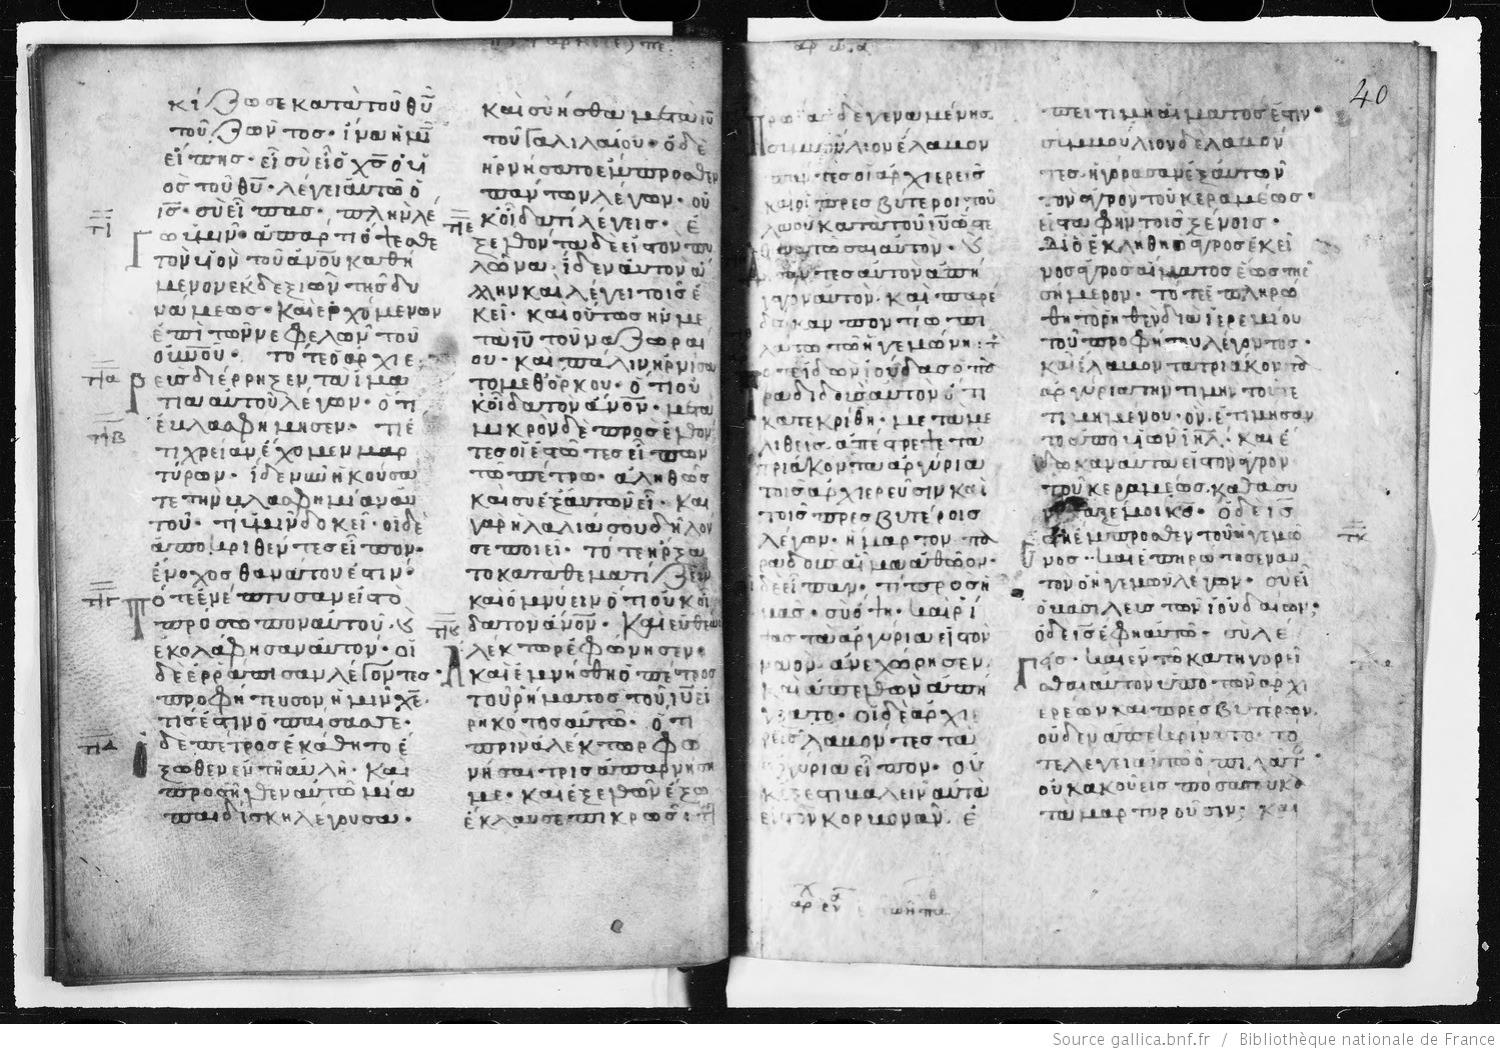 κίζωσεκατὰτοῦθῦ
τοῦζῶντος· ἵναἡμῖ
εἴπης· εἰσὺεἶὁχσὁυἱ
ὸςτοῦθῦ· λέγειαὐτῶὁ
ισ· σὺεἶπας· πλὴνλέ
γωὑμῖν· ἀπαρτιὄψεσθε
τὸνυἱὸντοῦἀνουκαθή
μενονἐκδεξιῶντῆςδυ
νάμεως· καὶἐρχόμενον
ἐπὶτῶννεφελῶντοῦ
οὐνοῦ· τότεὁἀρχιε
ρεὺςδιέρρηξενταἱμα
τιααὐτοῦλέγων· ὅτι
ἐβλασφήμησεν· τίἔ
τιχρείανἔχομενμαρ
τύρων· ἴδενῦνἠκούσα
τετὴνβλασφημίαναυ
τοῦ· τίὑμῖνδοκεῖ· οἱδὲ
ἀποκριθέντεςεἶπον·
ἔνοχοςθανάτουἐστίν·
τότεἐνέπτυσανεἰςτὸ
πρόσωποναὐτοῦ· καὶ
ἐκολάφησαναὐτόν· οἱ
δὲἐρράπισανλέγοντες·
προφήτευσονἡμῖνχε·
τίςἐστινὁπαίσαςσε·
ὁδὲπέτροςἐκάθητοἔ
ξωθενἐντῆαὐλῆ· καὶ
προσῆλθεναὐτῶμία
παιδίσκηλέγουσα·
καὶσὺἦσθαμετὰιῦ
τοῦγαλιλαίου· ὁδὲ
ἠρνήσατοἔμπροσθεν
πάντωνλέγων· οὐ
κοἶδατίλέγεις· ἐ
ξελθόνταδὲεἰςτὸνπυ
λῶνα· ἴδεναὐτὸνἄ
λληνκαὶλέγειτοῖςἐ
κεῖ· καὶοὗτοςἦνμε
τὰιῦτοῦναζωραί
ου· καὶπάλινἠρνήσα
τομεθὅρκου· ὅτιοὐ
κοἶδατὸνἄνον· μετὰ
μικρὸνδὲπροσελθόν
τεςοἱἑστῶτεςεἶπον
τῶπέτρω· ἀληθῶς
καὶσὺἐξαὐτῶνεἶ· καὶ
γὰρἡλαλιάσουδῆλόν
σεποιεῖ· τότεἤρξα
τοκαταθεματίζειν
καὶὀμνύεινὅτιοὐκοἶ
δατὸνἄνον· καὶεὐθέως
ἀλέκτωρἐφώνησεν·
καὶἐμνήσθηὁπέτρος
τοῦῥήματοςτοῦιῦεἰ
ρηκότοςαὐτῶ· ὅτι
πρὶνἀλέκτορφω
νῆσαιτρὶςἀπαρνήση
με· καὶἐξελθῶνἔξω
ἔκλαυσεπικρῶς
Πρωίαςδὲγενομένης
συμβούλιονἔλαβον
πάντεςοἱἀρχιερεῖς
καὶοἱπρεσβύτεροιτοῦ
λαοῦκατὰτοῦιῦὥστε
θανατῶσαιαὐτόν· καὶ
δήσαντεςαὐτὸνἀπή
γαγοναὐτόν· καὶπαρέ
δωκανποντίωπι
λάτωτῶἡγεμόνι·
τότεἰδὼνἰούδαςὁπα
ραδιδοὺςαὐτὸνὅτι
κατεκρίθη· μεταμε
ληθεὶς· ἀπέστρεψετὰ
τριάκονταἀργύρια
τοῖςἀρχιερεῦσινκαὶ
τοῖςπρεσβυτέροις
λέγων· ἥμαρτονπα
ραδοὺςαἷμαἀθῶον·
οἱδὲεἶπαν· τίπρὸςἡ
μᾶς· σὺὄψη· καὶῥί
ψαςτὰἀργύριαεἰςτὸν
ναὸν· ἀνεχώρησεν·
καὶἀπελθὼνἀπή
γξατο· οἱδὲἀρχιε
ρεῖςλαβόντεςτὰ
ἀργύριαεἶπον· οὐ
κἔξεστιβαλεῖναὐτὰ
εἰςτὸνκορβονᾶν· ἐ
πεὶτιμὴαἵματόςἐστιν·
συμβούλιονδὲλαβόν
τες· ἠγόρασανἐξαὐτῶν
τὸνἀγρὸντοῦκεραμέως·
εἰςταφὴντοῖςξένοις·
διὸἐκλήθηὁἀγρὸςἐκεῖ
νοςἀγρὸςαἵματοςἕωςτῆς
σήμερον· τότεἐπληρώ
θητὸῥηθὲνδιαἱερεμίου
τοῦπροφήτουλέγοντος·
καὶἔλαβοντὰτριάκοντα
ἀργύριατὴντιμὴντοῦτε
τιμημένου· ὃνἐτιμήσαν
τοἀπὸυἱῶνιηλ· καὶἔ
δωκαναὐτὰεἰςτὸνἀγρὸν
τοῦκεραμέως· καθὰσυ
νέταξέμοικς· ὁδὲις
ἔστηἔμπροσθεντοῦἡγεμό
νος· καὶἐπηρώτησεναυ
τὸνὁἡγεμὼνλέγων· σὺεἶ
ὁβασιλεὺςτῶνἰουδαίων;
ὁδὲιςἔφηαὐτῶ· σὺλέ
γεις· καὶἐντῶκατηγορεῖ
σθαιαὐτὸνὑπὸτῶνἀρχι
ερέωνκαὶπρεσβυτέρων·
οὐδὲνἀπεκρίνατο· τό
τελέγειαὐτῶὁπιλάτος·
οὐκἀκούειςπόσασουκα
ταμαρτυροῦσιν; καὶ
40
Source gallica.bnf.fr / Bibliothèque nationale de France